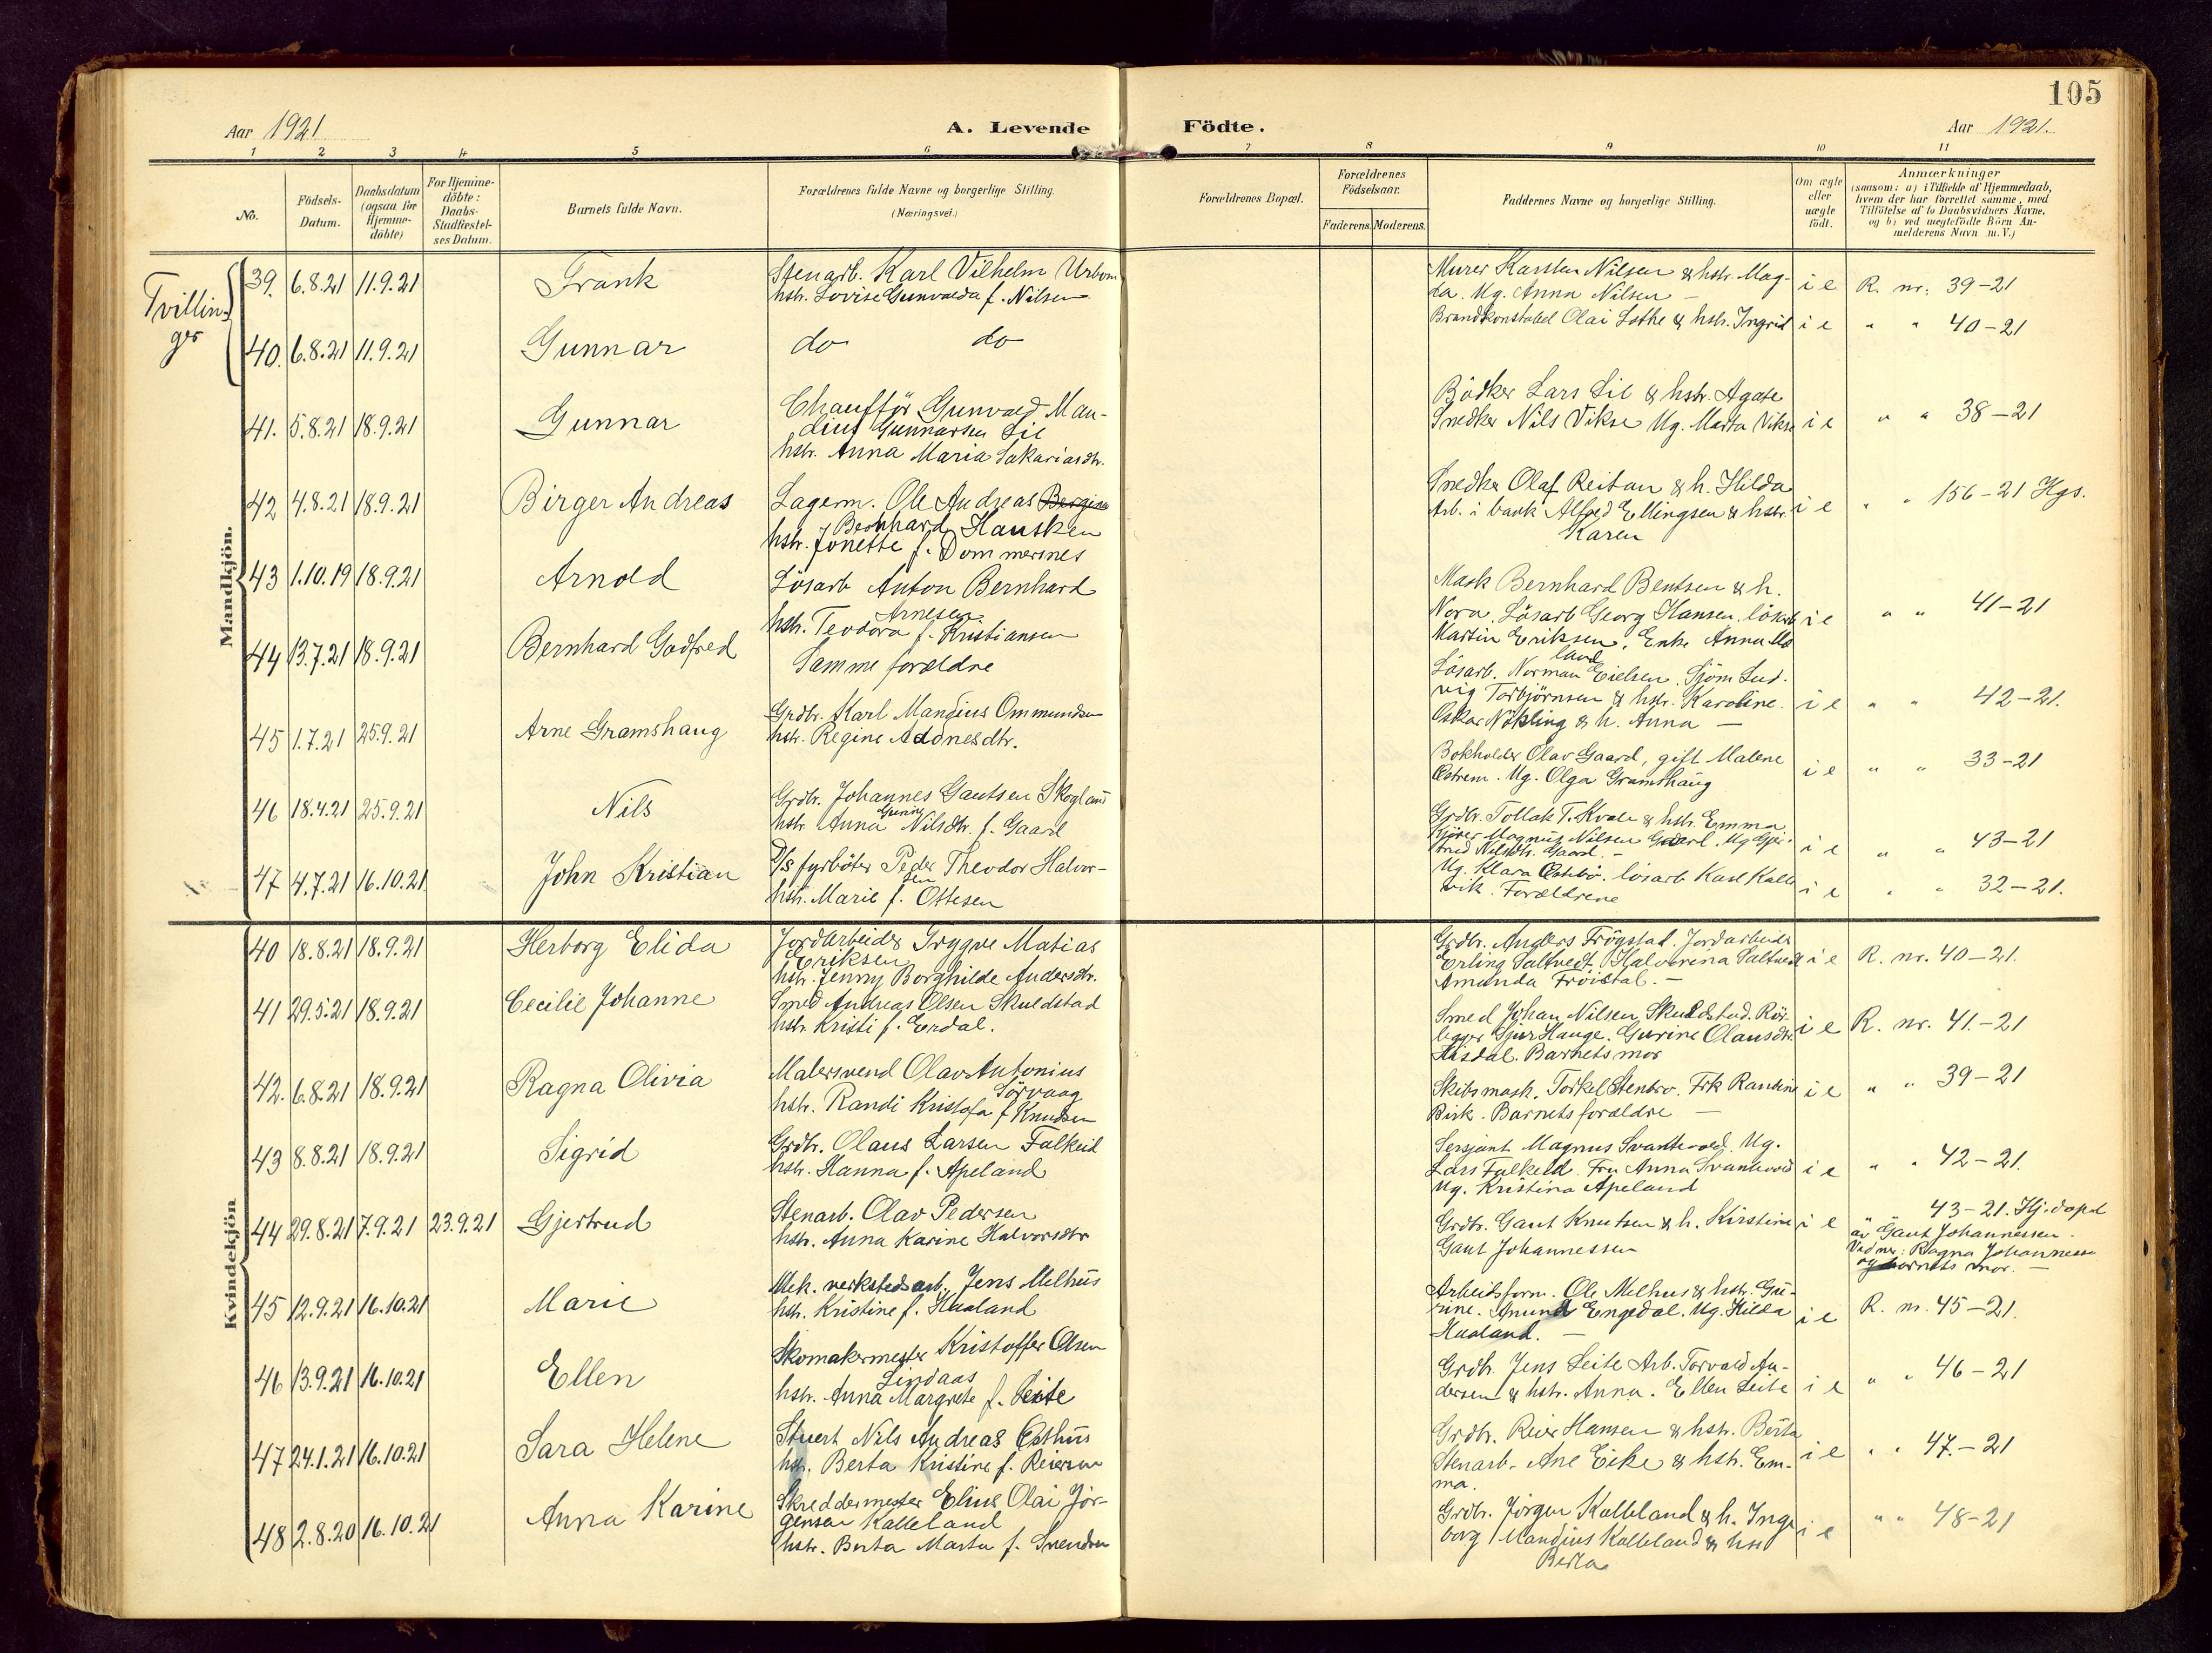 105
Aar 1921
A. Levende Födte.
Aar 1921.
1 2 3 4 5 6 7 8 9 10 11
No.
Födsels-
Datum.
Daabsdatum
(ogsaa for
Hjemme-
döbte)
For Hjemme-
döbte:
Daabs-
Stadfæstel-
ses Datum.
Barnets fulde Navn.
Forældrenes fulde Navne og borgerlige Stilling.
(Næringsvei.)
Forældrenes Bopæl.
Forældrenes
Födselsaar.
Faderens. Moderens.
Faddernes Navne og borgerlige Stilling.
Om ægte
eller
uægte
født.
Anmærkninger
(saasom: a) i Tilfælde af Hjemmedaab,
hvem der har forrettet samme, med
Tilföielse af to Daabsvidners Navne.
og b) ved uægtefödte Börn An-
melderens Navn m. V.)
Tvillin-
ger
Mandkjön.
39. 6.8.21 11.9.21 Frank
Stenarb. Karl Vilhelm Urbom
hstr. Lovise Gunvalda f. Nilsen
Murer Karsten Nilsen & hstr. Mag-
da. Ug. Anna Nilsen —
i e R. nr. 39-21
40. 6.8.21 11.9.21 Gunnar
do do
Brandkonstabel Olai Lothe & hstr. Ingrid
i e " " 40-21
41. 5.8.21 18.9.21 Gunnar
Chaufför Gunvald Man-
dius Gunnarsen Lie
hstr. Anna Maria Sakariasdtr.
Bödker Lars Lie & hstr. Agate
Snedker Nils Vikse Ug. Marta Vikse
i e " " 38-21
42 4.8.21 18.9.21 Birger Andreas
Lagerm. Ole Andreas
Bernhard Hausken
hstr. Jonette f. Dommersnes
Snedker Olaf Reitan & h. Hilda
Arb. i bank Alfred Ellingsen & hstr.
Karen
i e " " 156-21 Hgs.
43 1.10.19 18.9.21 Arnold
Lösarb Anton Bernhard
Arnesen
hstr. Teodora f. Kristiansen
Mask Bernhard Bentsen & h.
Nora. Lösarb Georg Hansen. lösarb
Martin Eriksen. Enke Anna
land
i e " " 41-21
44 13.7.21 18.9.21 Bernhard Godfred
Samme forældre
Lösarb. Norman Eielsen. Sjöm Lud-
vig Torbjörnsen & hstr. Karoline.
Oskar Nökling & h. Anna —
i e " " 42-21.
45 1.7.21 25.9.21 Arne Gramshaug
Grdbr. Karl Mandius Ommundsen
hstr. Regine Adonesdtr.
Bokholder Olav Gaard, gift Malene
Østrem. Ug. Olga Gramshaug
i e " " 33-21
46 18.4.21 25.9.21 Nils
Grdbr. Johannes Gautsen Skogland
hstr. Anna Gurine Nilsdtr. f. Gaard
Grdbr. Tollak T. Kvale & hstr. Emma
Magnus Nilsen Gaard. Ug Gjer-
trud Nilsdtr. Gaard. —
i e " " 43-21
47 4.7.21 16.10.21 John Kristian
D/s fyrböter Peder Theodor Halvor-
sen
hstr. Marie f. Ottesen
Ug. Klara Østebö. lösarb Karl Kalle
vik. Forældrene
i e " " 32-21.
Kvindekjön
40 18.8.21 18.9.21 Herborg Elida
Jordarbeider Tryggve Matias
Eriksen
hstr. Jenny Borghilde Andersdtr.
Grdbr. Anders Fröystad. Jordarbeider
Erling Saltvedt. Halvorina Saltvedt
Amanda Fröistad. —
i e R. nr. 40-21.
41 29.5.21 18.9.21 Cecilie Johanne
Smed Andreas Olsen Skuldstad
hstr. Kristi f. Erdal.
Smed Johan Nilsen Skuldstad. Rör-
legger Sjur Hauge. Gurine Olausdtr.
Aisdal. Barnets mor
i e R. nr. 41-21
42. 6.8.21 18.9.21 Ragna Olivia
Malersvend Olav Antonius
Sörvaag
hstr. Randi Kristofa f Knudsen
Skibsmask. Torkel Stenbro. Frk Randine
Birk. Barnets forældre —
i e " " 39-21
43 8.8.21 18.9.21 Sigrid
Grdbr. Olaus Larsen Falkeid
hstr. Hanna f. Apeland
Sersjant Magnus Svantevold. Ug.
Lars Falkeid. Fru Anna Svantevold
Ug. Kristina Apeland
i e " " 42-21.
44 29.8.21 7.9.21 23.9.21 Gjertrud
Stenarb. Olav Pedersen
hstr. Anna Karine Halvorsdtr
Grdbr. Gaut Knutsen & h. Kirstine
Gaut Johannessen
i e " " 43-21. Hj. döpt
av Gaut Johannessen.
Vidner: Ragna Johannessen
og barnets mor. —
45 12.9.21 16.10.21 Marie
Mek. verkstedsarb. Jens Melhus
hstr. Kristine f. Haaland
Arbeidsform. Ole Melhus & hstr. Gu-
rine. Amund Engedal. Ug. Hilda
Haaland. —
i e R. nr. 45-21.
46 13.9.21 16.10.21 Ellen
Skomakermester Kristoffer Olsen
Lindaas
hstr. Anna Margrete f. Leite
Grdbr. Jens Leite Arb. Torvald An-
dersen & hstr. Anna. Ellen Leite
i e " " 46-21
47 24.1.21 16.10.21 Sara Helene
Stuert Nils Andreas Østhus
hstr. Berta Kristine f. Reiersen
Grdbr. Reier Hansen & hstr. Berta
Stenarb. Ane Eike & hstr. Em-
ma.
i e " " 47.-21
48 2.8.20 16.10.21 Anna Karine
Skreddermester Elius Olai Jör-
gensen Kalleland
hstr. Berta Marta f. Svendsen
Grdbr. Jörgen Kalleland & h. Inge
borg Mandius Kalleland & hstr
Berta
i e " " 48-21